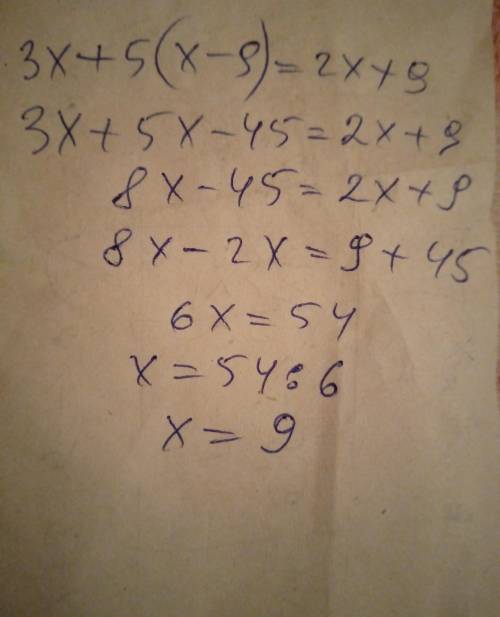 3x+5(x-9)=2x+9
3x+5x-45=2x+9
8x-45=2x+9
8x-2x=9+45
6x=54
x=54:6
x=9